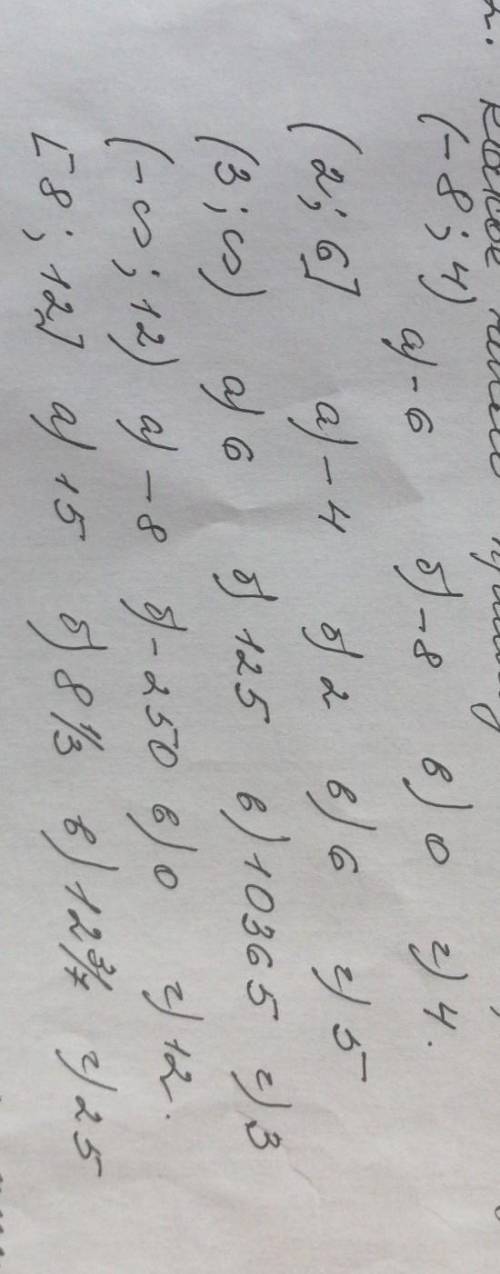 2. Какое число
(-8; 4) а) -6 б) -8 в) 0 г) 4.
(2; 6] а) -4 б) 2 в) 6 г) 5
(3; ∞) а) 6 б) 125 в) 10365 г) 3
(-∞; 12) а) -8 б) -250 в) 0 г) 12.
[8; 12] а) 15 б) 8 1/3 в) 12 3/7 г) 25